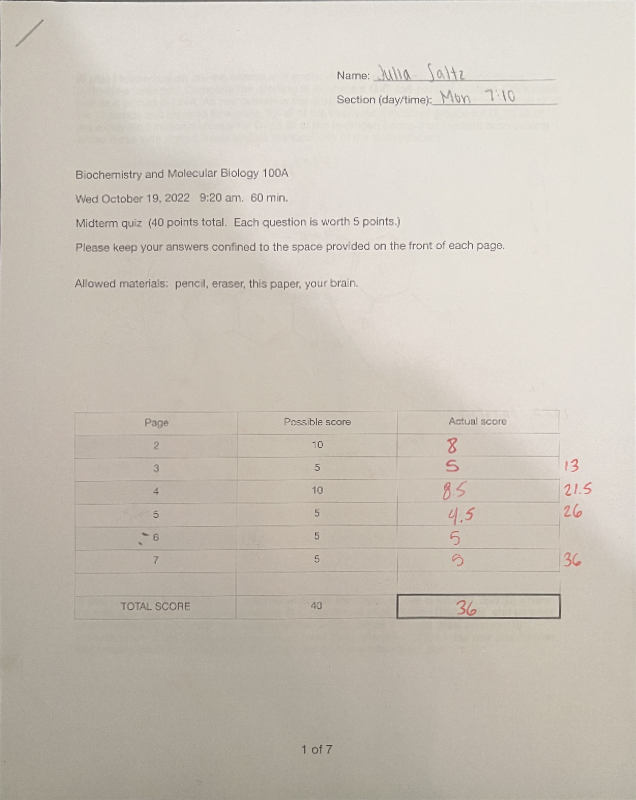 Name: Julia Saltz
Section (day/time): Mon 7:10
Biochemistry and Molecular Biology 100A
Wed October 19, 2022 9:20 am. 60 min.
Midterm quiz (40 points total. Each question is worth 5 points.)
Please keep your answers confined to the space provided on the front of each page.
Allowed materials: pencil, eraser, this paper, your brain.
Page Possible score Actual score
2 10 8
3 5 5 13
4 10 8.5 21.5
5 5 4.5 26
6 5 5
7 5 5 36
TOTAL SCORE 40 36
1 of 7